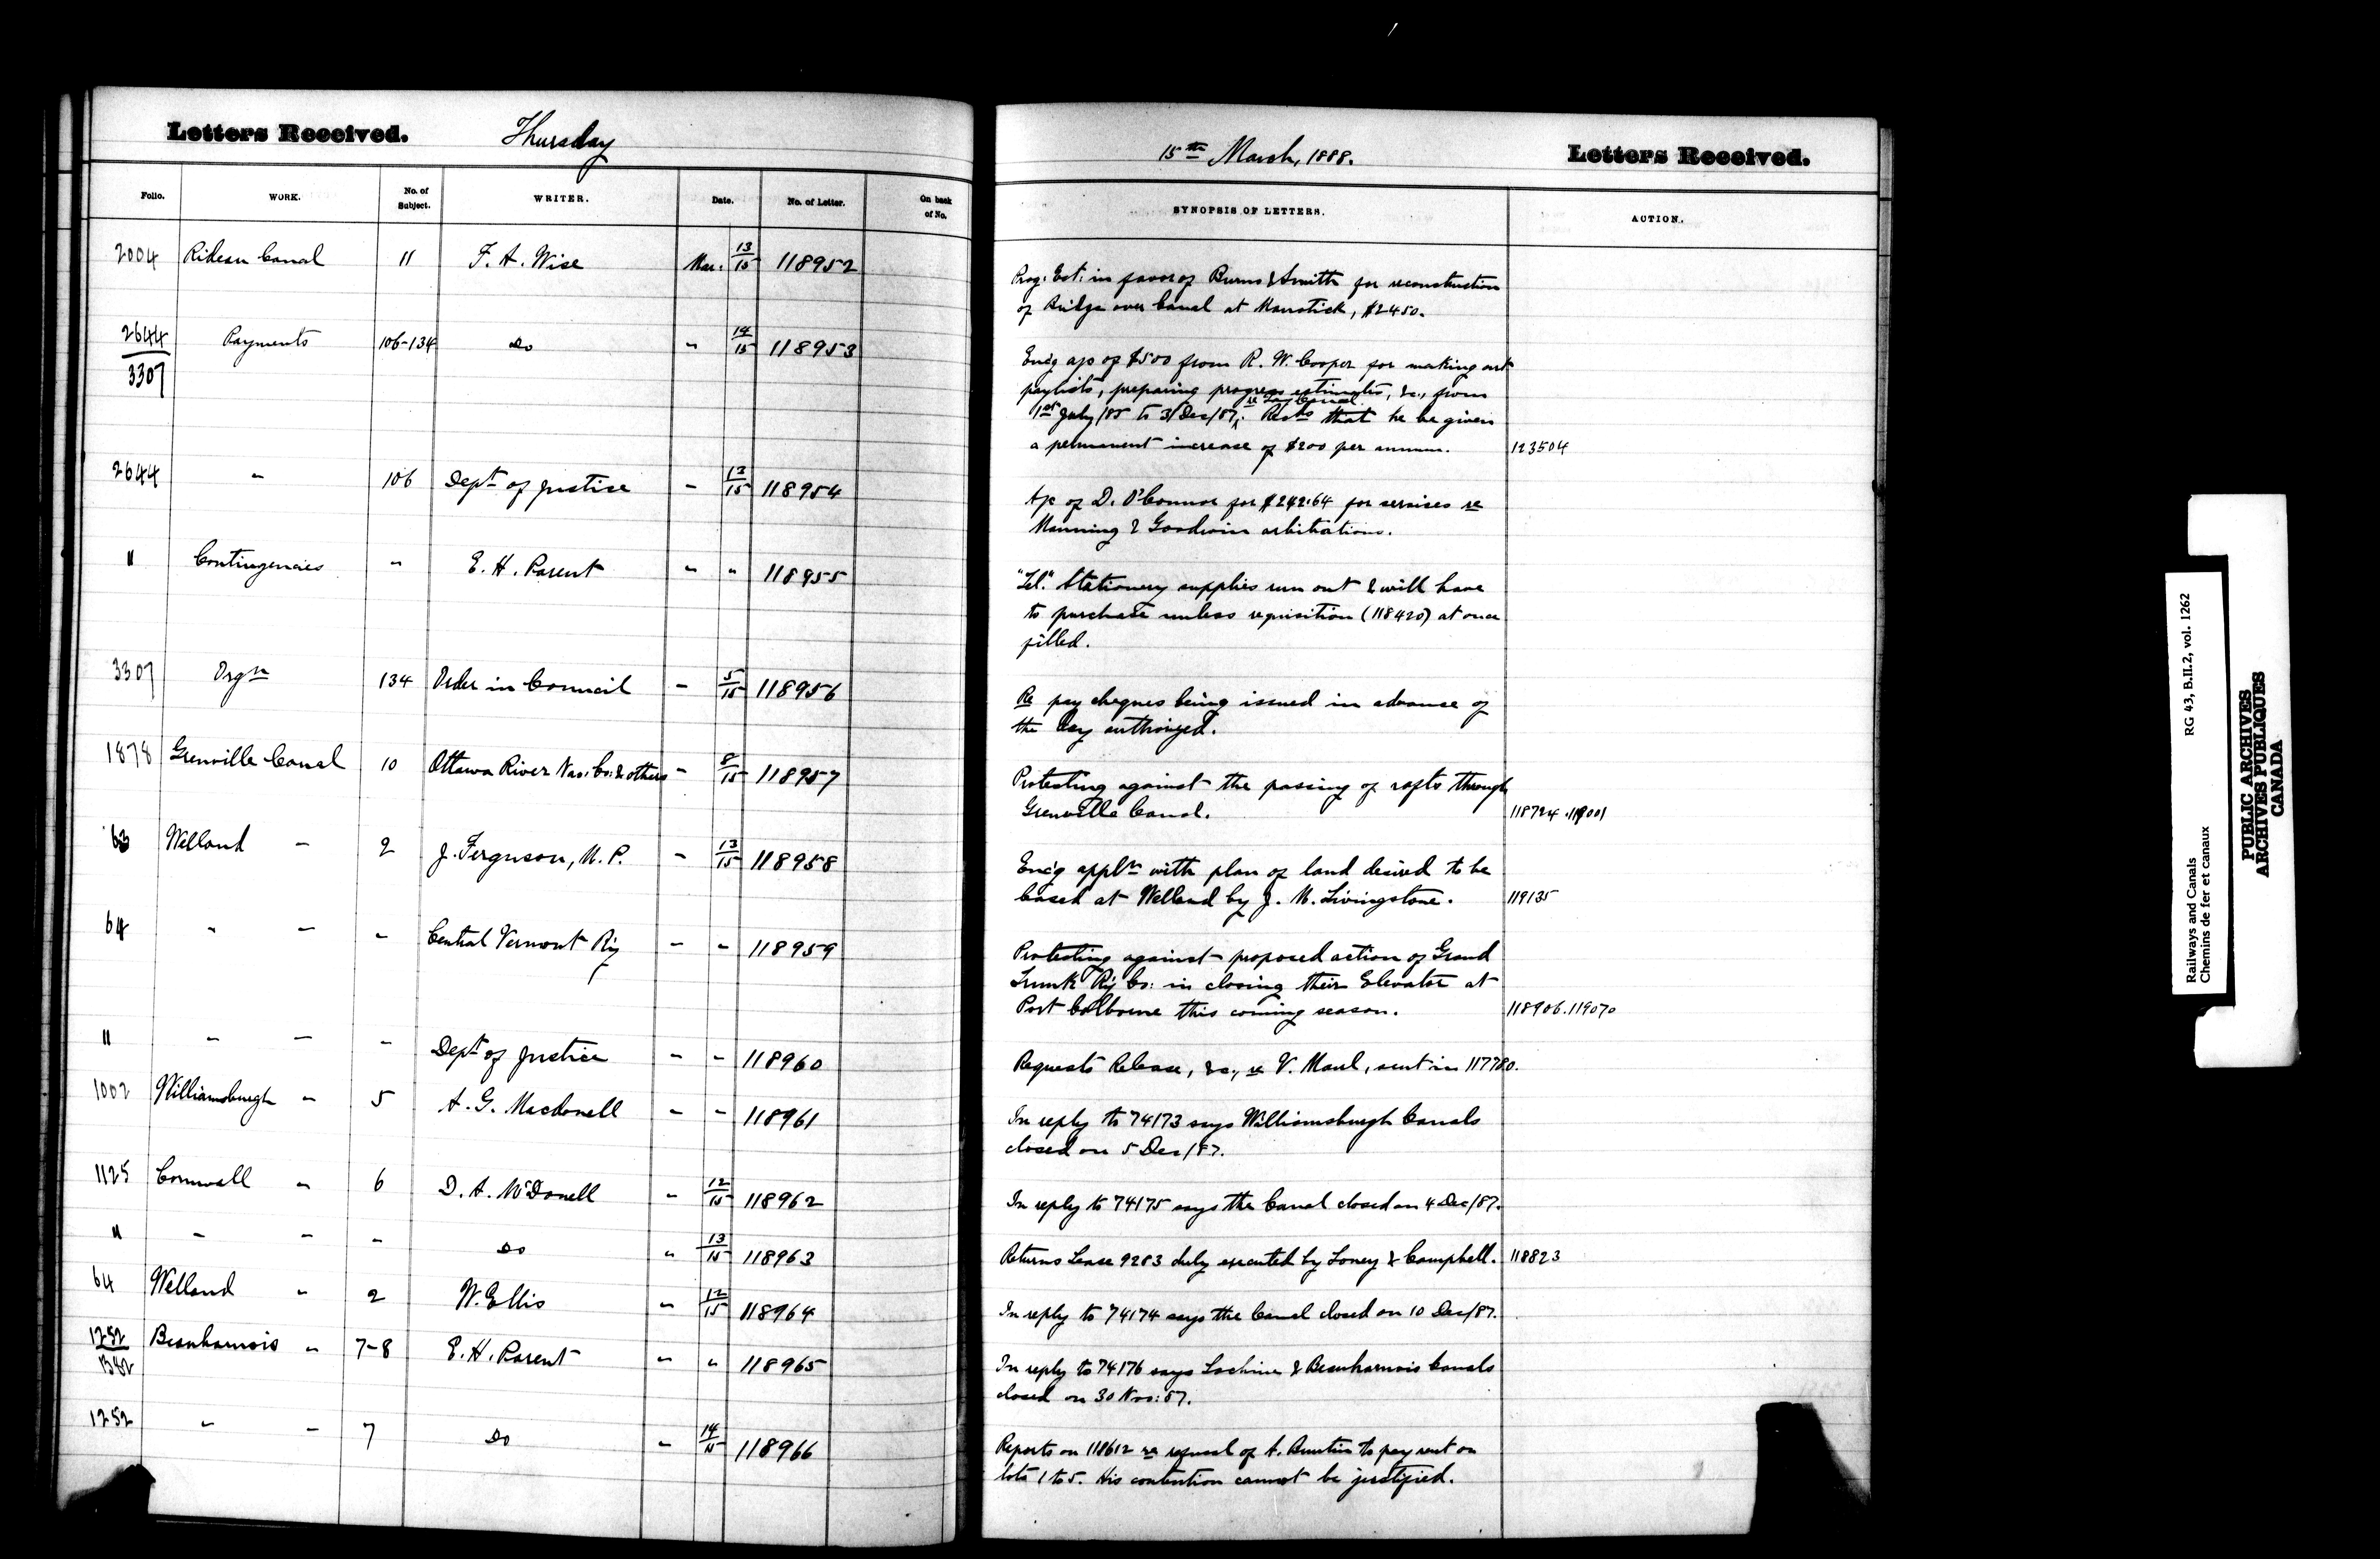 Letters Received. Thursday
Folio. WORK. No. of Subject. WRITER. Date. No. of Letter. On back of No.
2004 Rideau Canal 11 F. A. Wise Mar. 13/15 118952
2644/3307 Payments 106-134 Do " 14/15 118953
2644 " 106 Dept of Justice " 13/15 118954
" Contingencies " E. H. Parent " " 118955
3307 Orgn 134 Order in Council " 5/15 118956
1878 Grenville Canal 10 Ottawa River Nav: Co: & others " 8/15 118957
63 Welland " 2 J. Ferguson, M.P. " 13/15 118958
64 " " " Central Vermont Ry " " 118959
" " " " Dept of Justice " " 118960
1002 Williamsburgh " 5 A. G. Macdonell " " 118961
1125 Cornwall " 6 D. A. McDonell " 12/15 118962
" " " " Do " 13/15 118963
64 Welland " 2 W. Ellis " 12/15 118964
1252/1382 Beauharnois " 7-8 E. H. Parent " " 118965
1252 " " 7 Do " 14/15 118966
15th March, 1888. Letters Received.
SYNOPSIS OF LETTERS. ACTION.
Prog: Est: in favor of Burns & Smith for reconstruction
of Bridge over Canal at Manotick, $2450.
Enc'g a/c of $500 from R. W. Cooper for making out
paylists, preparing progress estimates, &c., from
re Tay Canal
1st July/85 to 31 Dec/87. Recds that he be given
a permanent increase of $200 per annum. 123504
A/c of D. O'Connor for $242.64 for services re
Manning & Goodwin arbitrations.
"Tel." Stationery supplies run out & will have
to purchase unless requisition (118420) at once
filled.
Re pay cheques being issued in advance of
the day authorized.
Protesting against the passing of rafts through
Grenville Canal. 118724.119001
Enc'g appln with plan of land desired to be
leased at Welland by J. M. Livingstone. 119135
Protesting against proposed action of Grand
Trunk Ry Co: in closing their Elevator at
Port Colborne this coming season. 118906.119070
Requests Release, &c., re V. Maul, sent in 117780.
In reply to 74173 says Williamsburgh Canals
closed on 5 Dec/87.
In reply to 74175 says the Canal closed on 4 Dec/87.
Returns Lease 9283 duly executed by Loney & Campbell. 118823
In reply to 74174 says the Canal closed on 10 Dec/87.
In reply to 74176 says Lachine & Beauharnois Canals
closed on 30 Nov: 87.
Reports on 118612 re refusal of A. Buntin to pay rent on
lots 1 to 5. His contention cannot be justified.
Railways and Canals RG 43, B.II.2, vol. 1262
Chemins de fer et canaux
PUBLIC ARCHIVES
ARCHIVES PUBLIQUES
CANADA